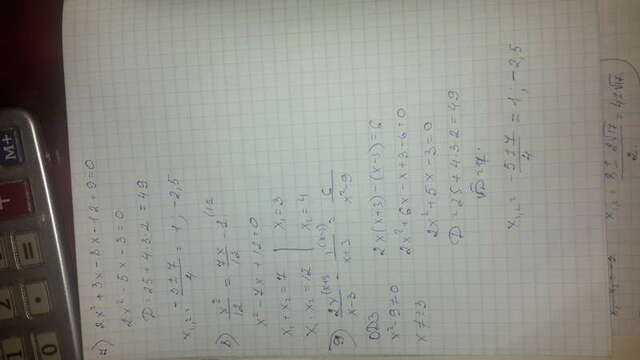 2x² + 3x - 8x - 12 + 9 = 0
2x² - 5x - 3 = 0
D = 25 + 4·3·2 = 49
x₁,₂ = -5±7/4 = 1, -2,5
б) x²/12 = 7x/12 - 1 |·12
x² - 7x + 12 = 0
x₁ + x₂ = 7 | x₁ = 3
x₁·x₂ = 12 | x₂ = 4
2x/x-3 (x+3) - 1/x+3 (x-3) = 6/x²-9
ОДЗ
x² - 9 ≠ 0
x ≠ ±3
2x(x+3) - (x-3) = 6
2x² + 6x - x + 3 - 6 = 0
2x² + 5x - 3 = 0
D = 25 + 4·3·2 = 49
√D = 7.
x₁,₂ = -5±7/4 = 1, -2,5
2√17/2 = 4±√17
M+